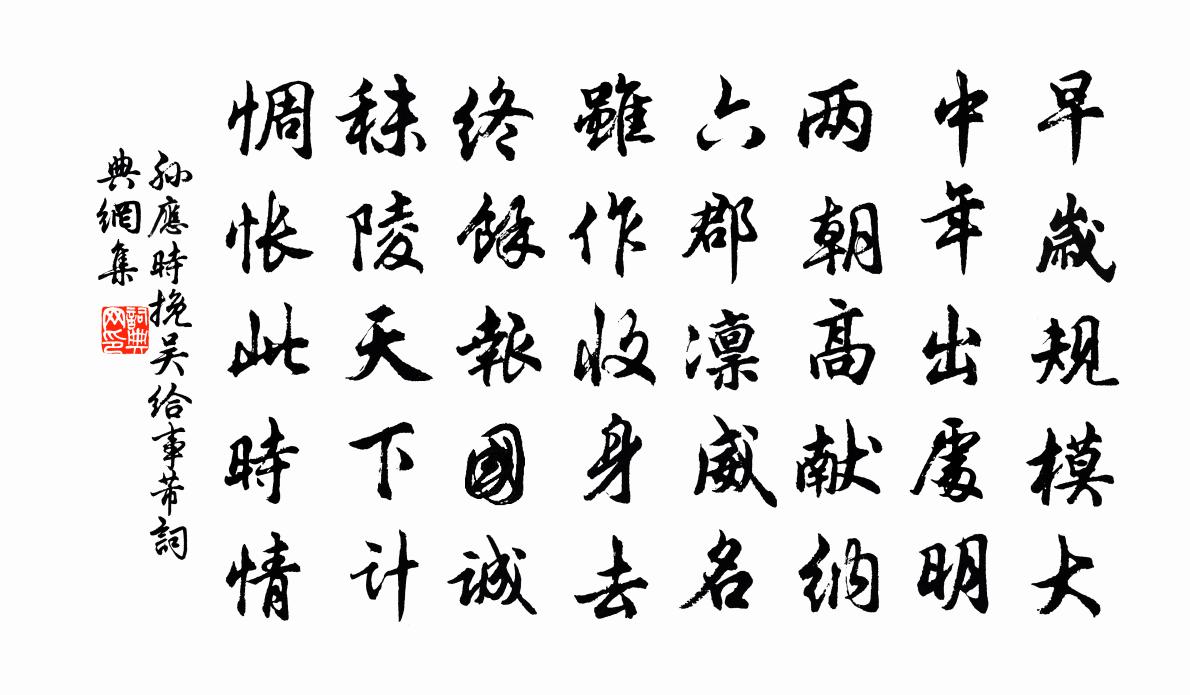 早歲規模大
中年出處明
两朝高献納
六郡凛威名
雖作收身去
終餘報國誠
秣陵天下計
惆怅此時情
孙應時挽吴给事芾詞
典網集
詞典网印